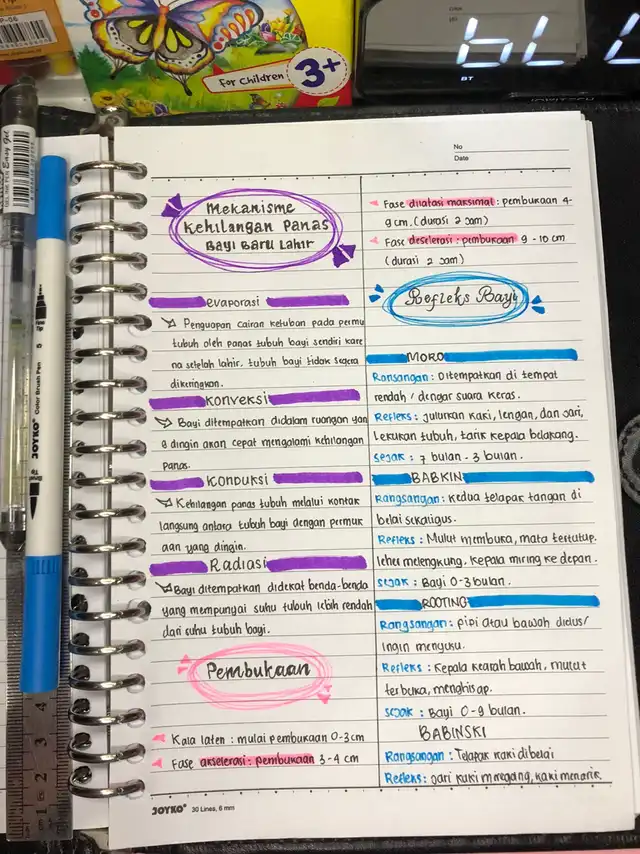 For Children 3+
P-06
BT
No
Date
Mekanisme
Kehilangan Panas
Bayi Baru Lahir
evaporasi
Penguapan cairan ketuban pada permu
tubuh oleh panas tubuh bayi sendiri kare
na setelah lahir, tubuh bayi tidak segera
dikeringkan.
Konveksi
Bayi ditempatkan didalam ruangan yan
g dingin akan cepat mengalami kehilangan
Panas.
Konduksi
Kehilangan panas tubuh melalui kontak
langsung antara tubuh bayi dengan permuk
aan yang dingin.
Radiasi
Bayi ditempatkan didekat benda-benda
yang mempunyai suhu tubuh lebih rendah
dari suhu tubuh bayi.
Pembukaan
Kala laten : mulai pembukaan 0-3cm
Fase akselerasi : pembukaan 3-4 cm
Fase dilatasi maksimal : pembukaan 4-
9cm. (durasi 2 jam)
Fase deselerasi : pembukaan 9 - 10 cm
(durasi 2 jam)
Refleks Bayi
MORO
Ransangan : Ditempatkan di tempat
rendah / dengar suara keras.
Refleks : julurkan kaki, lengan, dan jari,
Lekukan tubuh, tarik kepala belakang.
sejak : 7 bulan - 3 bulan.
BABKIN
Rangsangan : kedua telapak tangan di
belai sekaligus.
Refleks : Mulut membuka, mata tertutup.
leher melengkung, kepala miring ke depan.
sejak : Bayi 0-3 bulan.
ROOTING
Rangsangan : pipi atau bawah dielus/
ingin menyusu.
Refleks : kepala kearah bawah, mulut
terbuka, menghisap.
sejak : Bayi 0-9 bulan.
BABINSKI
Rangsangan : Telapak kaki dibelai
Refleks : jari kaki meregang, kaki menarik.
JOYKO 30 Lines, 6 mm
JOYKO Color Brush Pen
GEL INK PEN Easy Gel
1 2 3 4